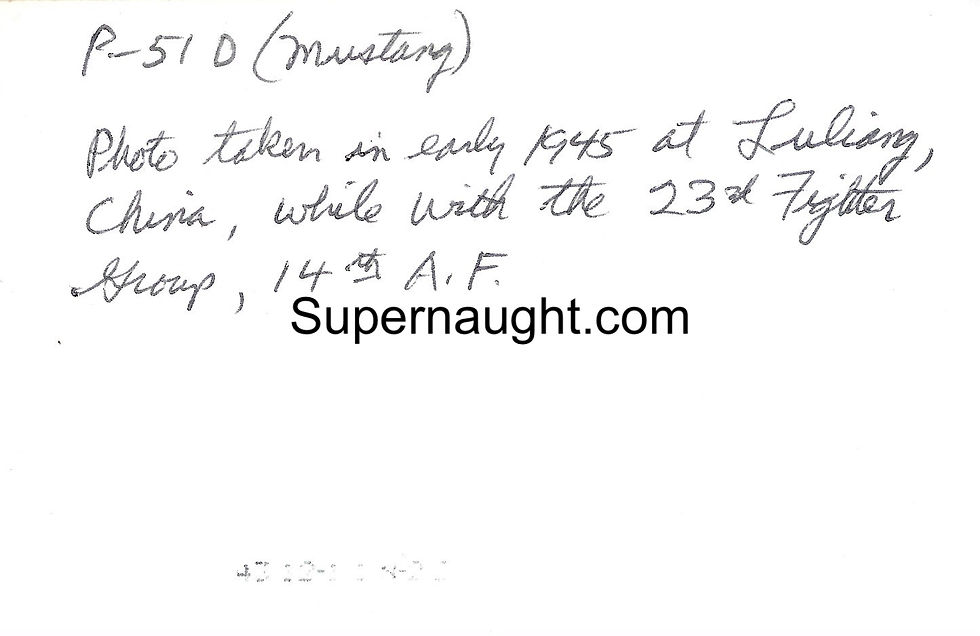 P-51 D (Mustang)
Photo taken in early 1945 at Luliang,
China, while with the 23rd Fighter
Group, 14th A.F.
Supernaught.com